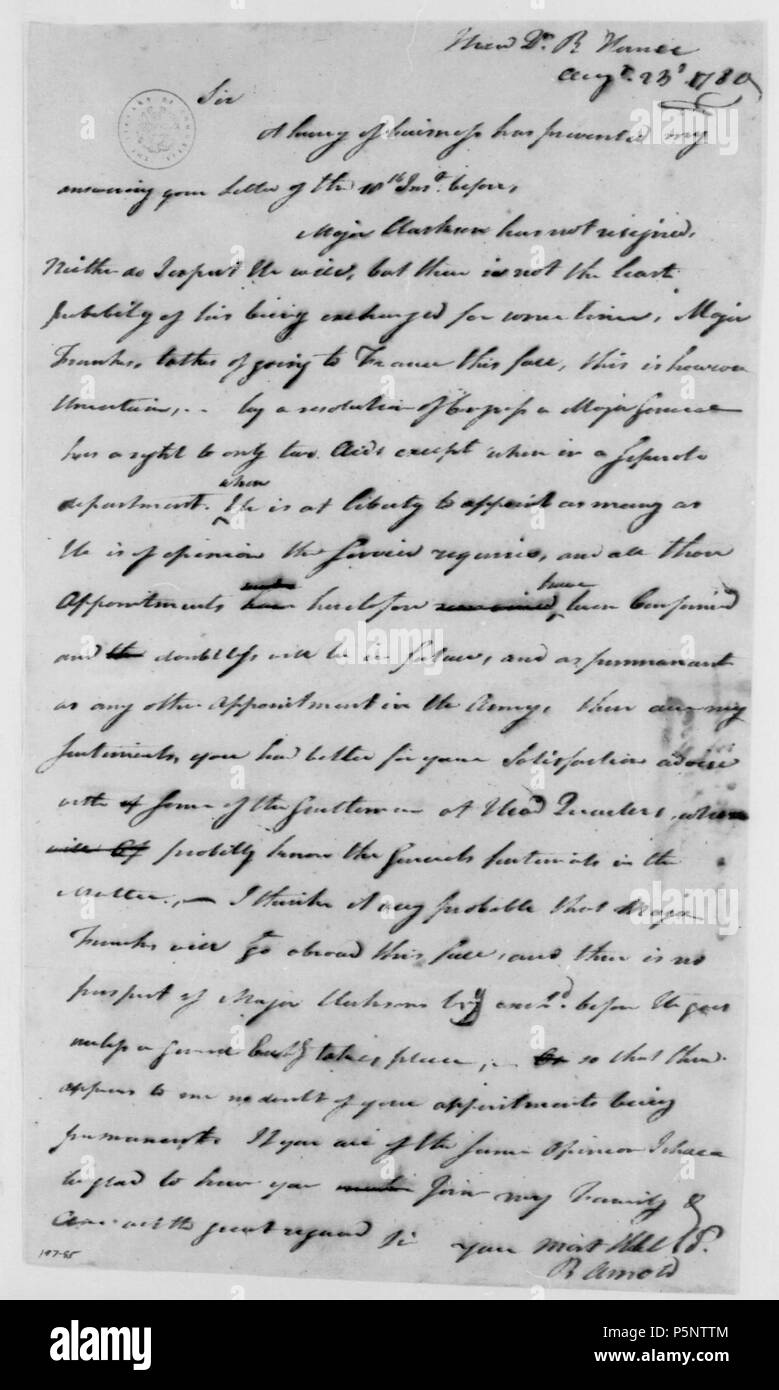 Head Qrs. R House
Augt. 23d. 1780
Sir
A hurry of business has prevented my
answering your Letter of the 18th Inst. before,
Major Clarkson has not resigned,
Neither do I expect He will, but there is not the least
probility of his being exchanged for some time, Major
Franks, talkes of going to France this fall, this is however
Uncertain, - by a resolution of Congress a Major General
has a right to only two Aids except when in a seperate
department. when He is at liberty to appoint as many as
He is of opinion the Service requires, and all those
Appointments heretofore have been Confirmed
and doubtless will be in future, and as permanant
as any other appointment in the Army, these are my
sentiments, you had better for your Satisfaction advise
with some of the Gentlemen at Head Quarters, who
will probilly know the Generals sentiments in the
Matter, - I think it very probable that Major
Franks will go abroad this fall, and there is no
prospect of Major Clarksons being exchd. before He goes
unless a general Cartel takes place, - so that there
appears to me no doubt of your appointments being
permanent. If you are of the same Opinion I shall
be glad to have you Join my Family &
am with great regard Sir your most Hble Sr.
B Arnold
197-85
LIBRARY OF CONGRESS
alamy
Image ID: P5NTTM
www.alamy.com